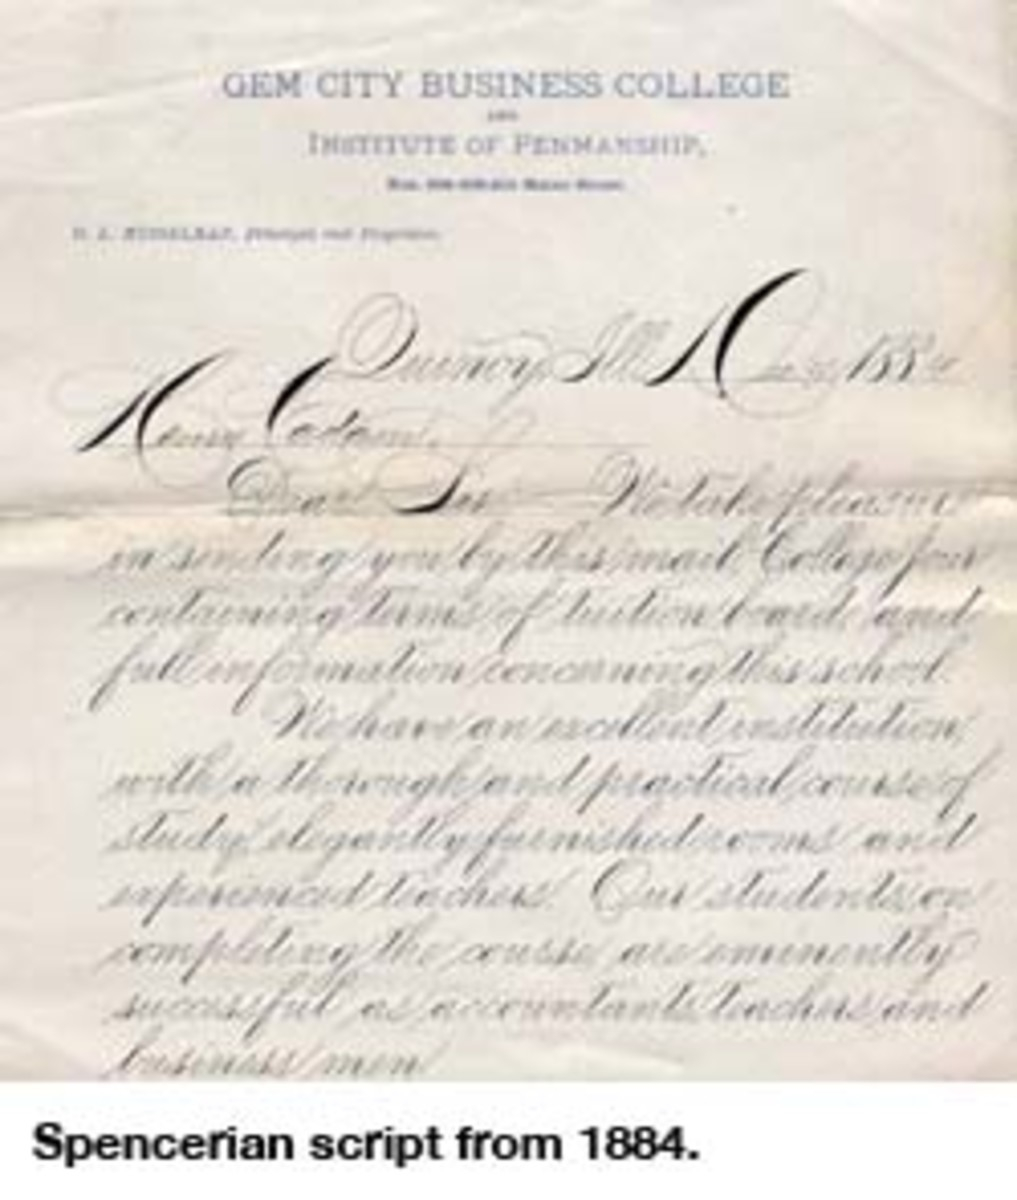 GEM CITY BUSINESS COLLEGE
AND
INSTITUTE OF PENMANSHIP,
Quincy, Ill. 1884
Henry
Dear Sir We take pleasure
in sending you by this mail College
containing terms of tuition board, and
full information concerning this school.
We have an excellent institution,
with a thorough and practical course of
study, elegantly furnished rooms and
experienced teachers. Our students, on
completing the course, are eminently
successful as accountants, teachers, and
business men
Spencerian script from 1884.